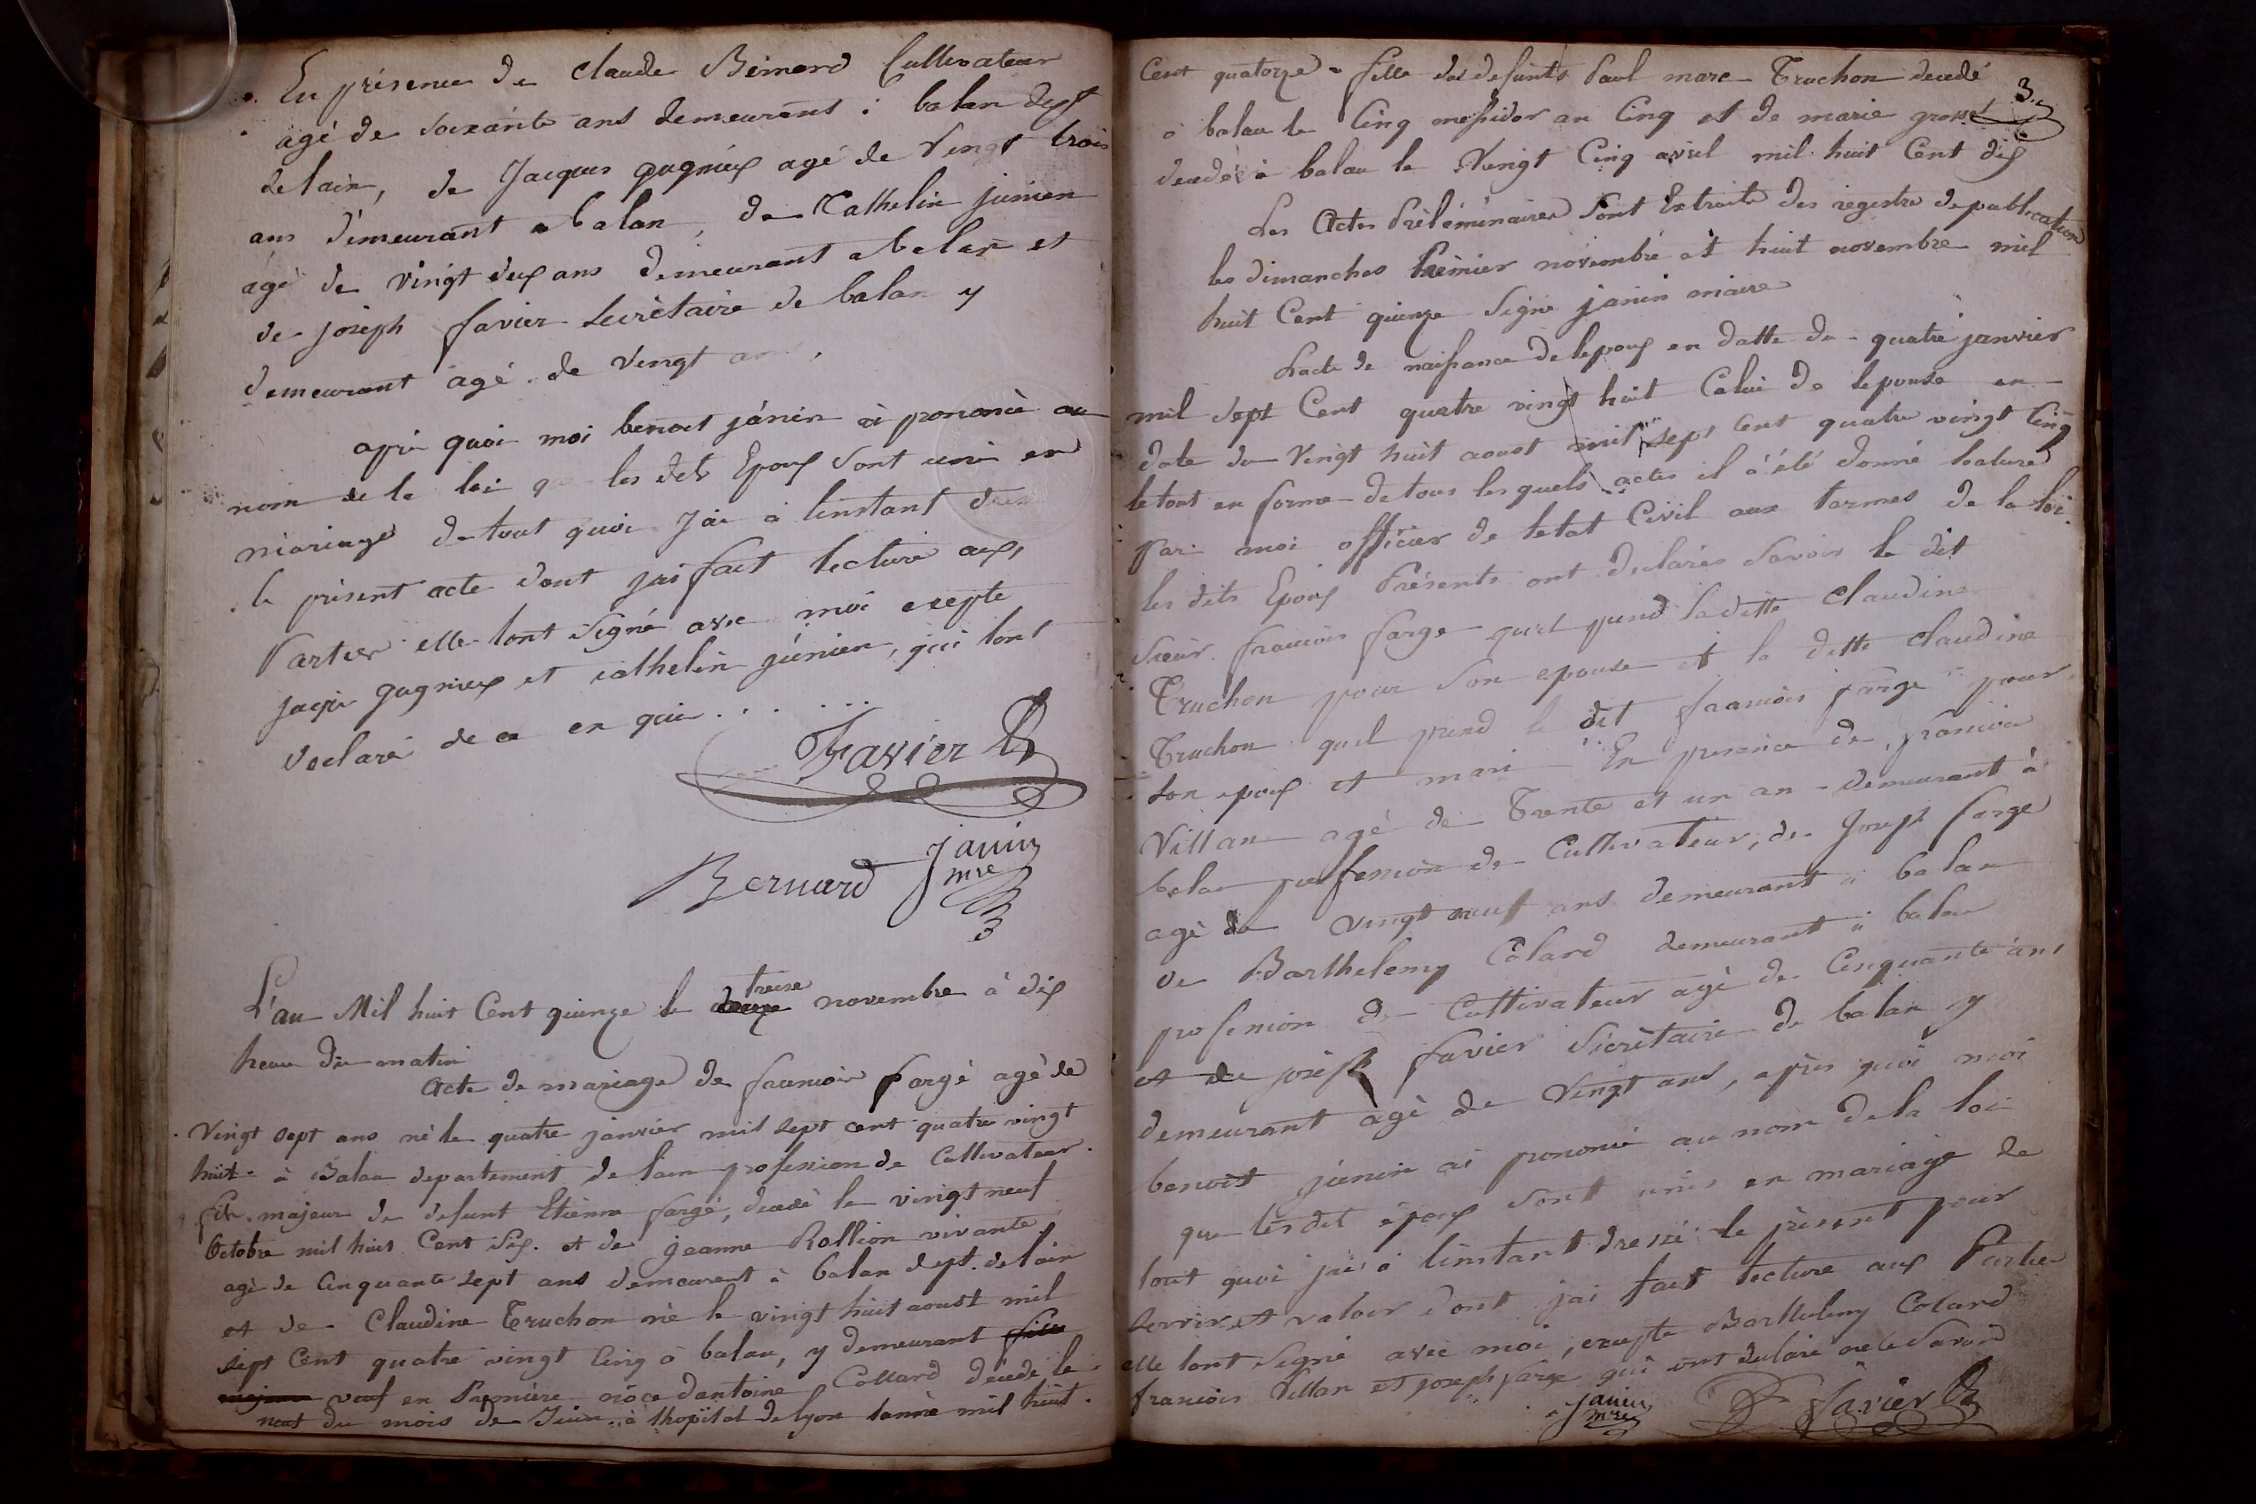 En présence de Claude Bernard Cultivateur
agé de soixante ans demeurans à balan dept
de lain, de Jacques gagnieux agé de Vingt trois
ans demeurant a balan, de Cathelin junien
agé de vingt deux ans demeurant a balan et
de joseph favier secrètaire de balan y
demeurant agé de vingt ans,
apré quoi moi benoit jánin ai prononcé au
nom de la loi que les dits Epoux sont unis en
mariage de tout quoi jai a linstant dressé
le présent acte dont jai fait lecture aux
Parties elle lont signé avec moi exepte
jaque gagnieux et cathelin junien, qui lont
declaré de ce en quis . . . . . .
Favier
Janin
mre
Bernard
L'an Mil huit Cent quinze le douze treise novembre à dix
heure du matin
Acte de mariage de francois fargé agé de
Vingt sept ans né le quatre janvier mil sept cent quatre vingt
huit à Balan departement de lain profession de Cultivateur
fils majeur de defunt Etienne fargé, decedé le vingt neuf
Octobre mil huit Cent six. et de jeanne Rollion vivante
agé de Cinquante sept ans demeurant à balan dept. de lain
et de Claudine Truchon née le vingt huit aoust mil
sept Cent quatre vingt Cinq à balan, y demeurant fille
majeure veuf en Première nôce dantoine Collard décedé le
neuf du mois de Juin à lhopital de lyon lannée mil huit
3.
Cent quatorze fille des defunts Paul marc Truchon decedé
à balan le Cinq messidor an Cinq et de marie grosset
decedée à balan le Vingt Cinq avril mil huit Cent dix
Les Actes Préléminaires sont Extraits des registre de publication
les dimanches Premier novembre et huit novembre mil
huit Cent quinze Signé janin maire
Lacte de naissance de lepoux en datte du quatre janvier
mil sept Cent quatre vingt huit Celui de lepouse en
date du Vingt huit aoust mil sept Cent quatre vingt Cinq
le tout en forme de tous les quels actes il à été donné lecture
Par moi officier de letat Civil aux termes de la loi.
les dits Epoux Présents ont declarés Savoir le dit
Sieur francois farge quil prend la ditte Claudine
Truchon pour Son epouse et la ditte claudine
Truchon quel prend le dit francois farge pour
Son epoux et mari En presence de francois
Villan agé de Trente et un an demeurant à
balan profession de Cultivateur, de Joseph farge
agé de vingt neuf ans demeurant à balan
de Barthelemy Colard demeurant à balan
profession de Cultivateur agé de Cinquante ans
et de joseph favier Sécrètaire de balan y
demeurant agé de Vingt ans, après quoi moi
benoit janin ai prononcé au nom de la loi
que les dit époux sont unis en mariage de
tout quoi jai à linstant dressé le présent pour
servir et valoir dont jai fait lecture aux Partie
elle lont Signé avec moi, exepte Barthelemy Colard
francois Villan et joseph farge qui ont declaré ne le Savoir
Janin
mre
Favier